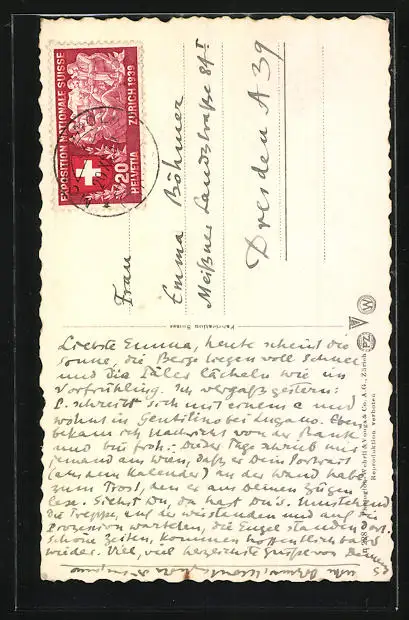 EXPOSITION NATIONALE SUISSE
ZURICH 1939
20
HELVETIA
Frau
Emma Böhmer
Meißner Landstraße 84 I
Dresden A 39
Fabrication Suisse
Liebste Emma, heute scheint die
Sonne, die Berge liegen voll Schnee
und die Täler lächeln wie im
Vorfrühling. Ich vergaß gestern:
L. schreibt sich mit einem c und
wohnt in Gentilino bei Lugano. Eben
bekam ich Nachricht von der Bank
und bin froh. Dieser Tage schrieb mir
jemand aus Wien, daß er Dein Portrait
(aus dem Kalender) an der Wand habe
zum Trost, den er aus Deinen Zügen
lese. Siehst Du, da hast Du's. Umstehend
die Treppe, auf der wir standen und auf die
Prozession warteten, die Engel standen dort.
Schöne Zeiten, kommen hoffentlich bald
wieder. Viel, viel herzlichste Grüße von
Wehrli & Vouga & Co. A.G., Zürich
Reproduktion verboten